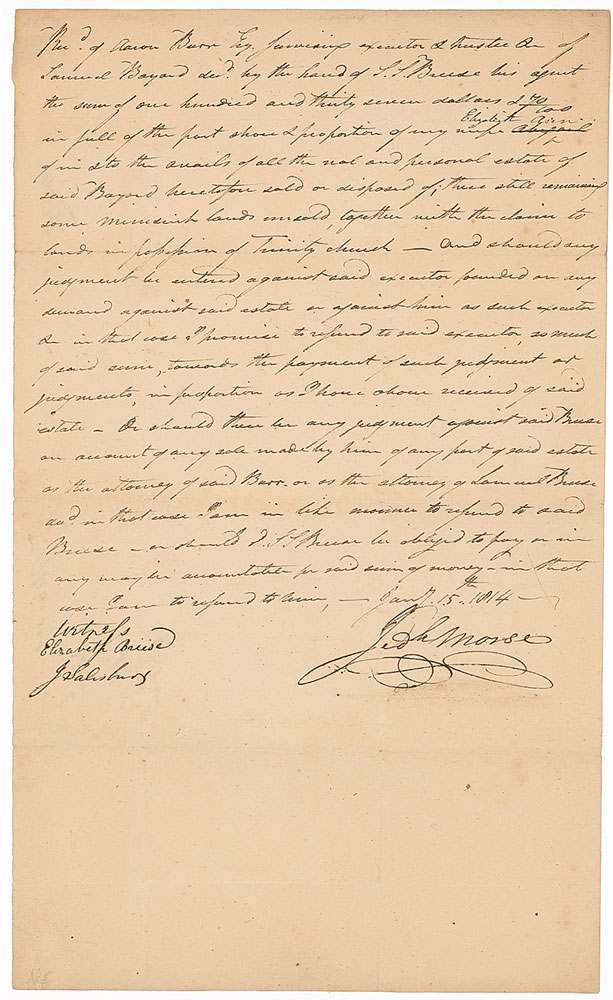 Rec.d of Aaron Burr Esq. surviving executor & trustee &c of
Samuel Bayard dec.d by the hand of S. S. Breese his agent
the sum of one hundred and thirty seven dollars & 70/100
in full of the part share & proportion of my wife Elizabeth Ann
of in & to the avails of all the real and personal estate of
said Bayard heretofore sold or disposed of; there still remaining
some Minisink lands unsold, together with the claim to
lands in possession of Trinity church — and should any
judgment be entered against said executor founded on any
demand against said estate or against him as such executor
&c in that case I promise to refund to said executor, so much
of said sum, towards the payment of such judgment or
judgments, in proportion as I have above received of said
estate — Or should there be any judgment against said Breese
on account of any sale made by him of any part of said estate
as the attorney of said Burr, or as the attorney of Samuel Breese
in that case I am in like manner to refund to said
Breese — or should S. S. Breese be obliged to pay or in
any way be accountable for said sum of money — in that
case I am to refund to him, — Jany. 15th. 1814 —
Witness
Elizabeth Breese
J Salisbury
Jedh Morse